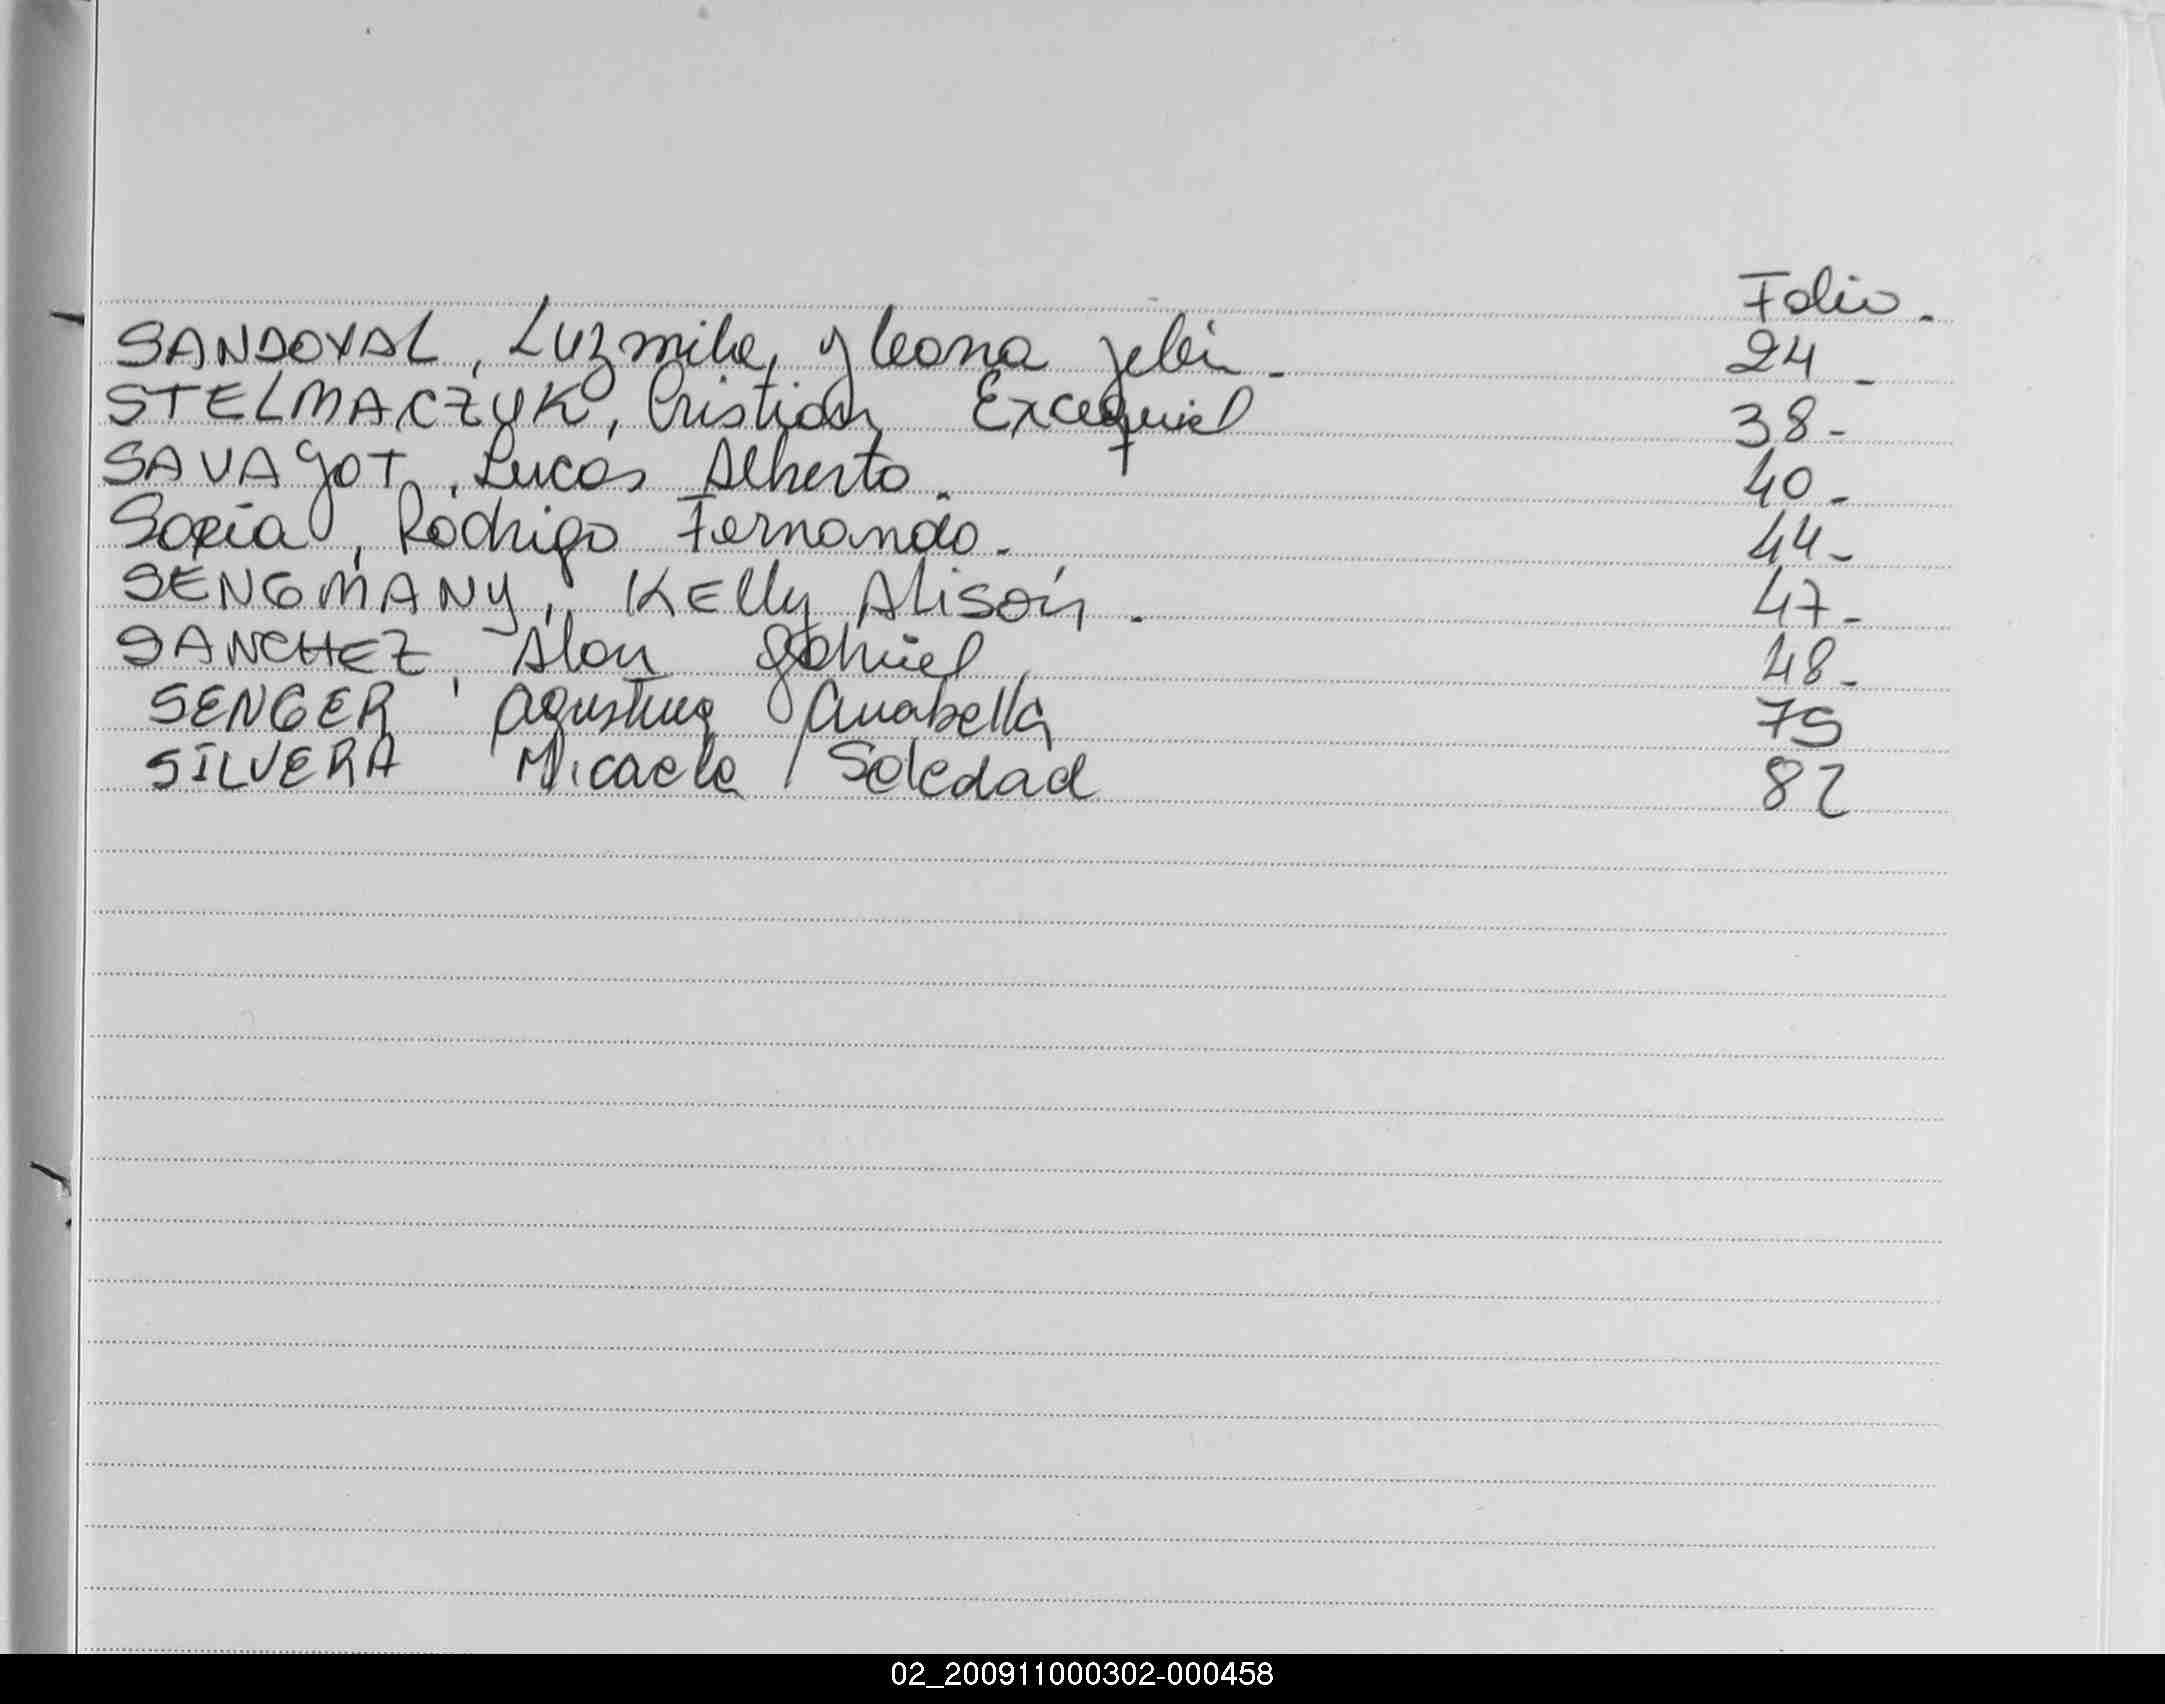 Folio.
SANDOVAL, Luzmila, yleana 24-
STELMACZYK, Cristian Excequiel 38-
SAVAgOT, Lucas Alberto. 40-
Soria, Rodrigo Fernando. 44-
SENGMANY, KElly Alison. 47-
SANCHEZ, Alan gabriel 48-
SENGER, Agustina Anabella 75
SILVERA Micaela Soledad 82
02_200911000302-000458